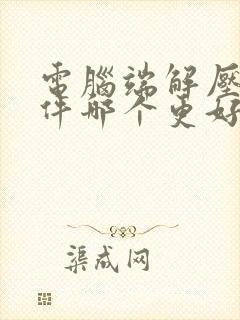 電腦端解壓
件哪个更好
渠成网